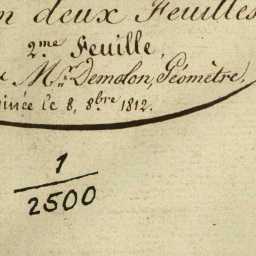 n deux Feuilles
2.me Feuille,
Mr. Demolon, Géomètre,
inée le 8, 8.bre 1812.
1
2500